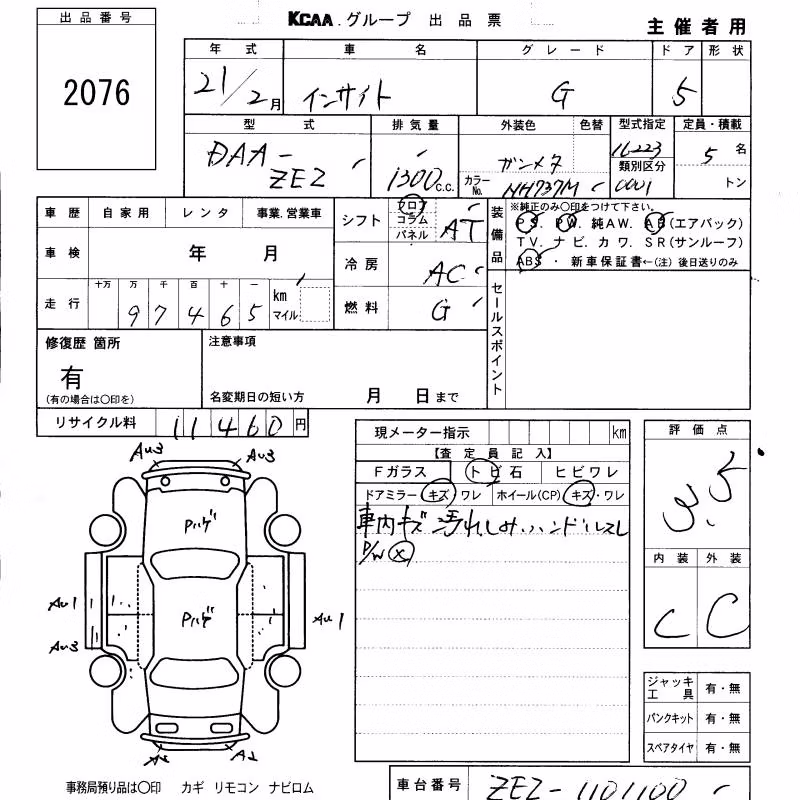 出品番号
2076
KCAA.グループ 出品票
主催者用
年式 車名 グレード ドア 形状
21/2月 インサイト G 5
型式 排気量 外装色 色替 型式指定 定員・積載
DAA-ZE2 1300c.c. ガンメタ 16223 5名
カラーNo. NH737M 類別区分 0001 トン
車歴 自家用 レンタ 事業.営業車
車検 年 月
走行 十万 万 千 百 十 一
97465 km マイル
シフト フロア コラム パネル AT
冷房 AC
燃料 G
装備品
※純正のみ〇印をつけて下さい。
PS. PW. 純AW. AB(エアバック)
TV. ナビ. カワ. SR(サンルーフ)
ABS ・ 新車保証書←(注) 後日送りのみ
セールスポイント
修復歴 箇所
有
(有の場合は〇印を)
注意事項
名変期日の短い方 月 日まで
リサイクル料 11460円
現メーター指示 km
【査定員記入】
Fガラス トビ石 ヒビワレ
ドアミラー キズ・ワレ ホイール(CP) キズ・ワレ
車内キズ 汚れ シミ ハンドルスレ
P/W X
評価点
3.5
内装 外装
C C
ジャッキ工具 有・無
パンクキット 有・無
スペアタイヤ 有・無
Au3 Au3
Pハゲ
Au1 Pハゲ Au1
Au3
A2 A2
事務局預り品は〇印 カギ リモコン ナビロム
車台番号 ZE2-1101100